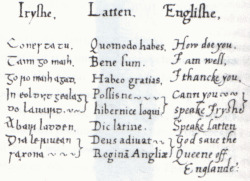 Iryshe. Latten. Englishe.
Conerta tu. Quomodo habes. How doe you.
Taim go maih. Bene sum. I am well,
Go ro maih agad. Habeo gratias. I thancke you.
In eolgr goelag Possis ne Cann you
do lauuird. hibernice loqui speake Iryshe
Abair ladden. Dic latine. Speake latten
Dia le riuean Deus adiuvat God save the
sarona Regina Angliæ Queene off
Englande.